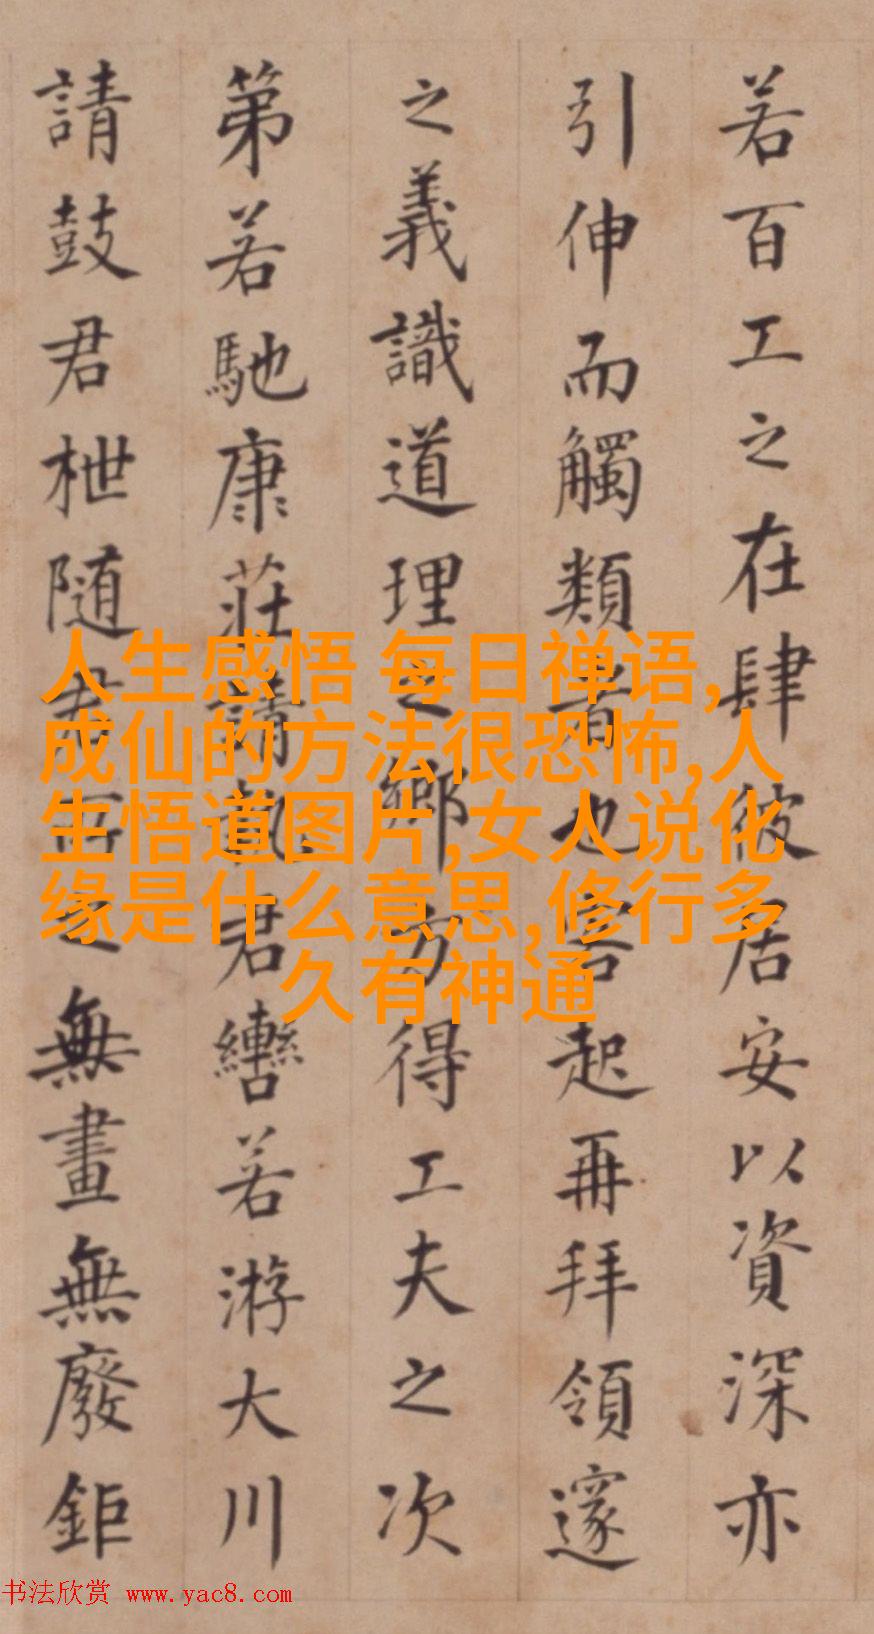 若百工之在肆彼居安以資深亦
引伸而觸類者也客起再拜領邃
之義識道理之鄉方得工夫之次
第若馳康莊請執君轡若游大川
請鼓君枻随君所之無畫無廢鉅
人生感悟 每日禅语,
成仙的方法很恐怖,人
生悟道图片,女人说化
缘是什么意思,修行多
久有神通
书法欣赏 www.yac8.com